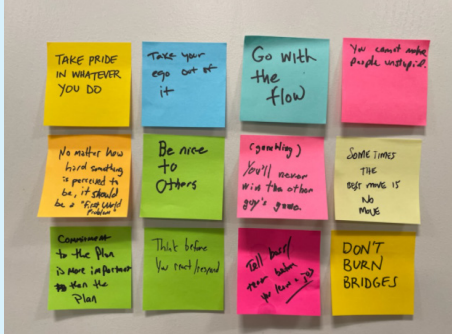 TAKE PRIDE
IN WHATEVER
YOU DO
Take your
ego out of
it
Go with
the
flow
You cannot make
people unstupid.
No matter how
hard something
is perceived to
be, it should
be a "First World
Problem"
Be nice
to
Others
(gambling)
You'll never
win the other
guy's game.
SOMETIMES
THE
BEST MOVE IS
NO
MOVE
Commitment
to the Plan
is more important
than the
Plan
Think before
you react/respond
Tell boss/
you have a
DON'T
BURN
BRIDGES